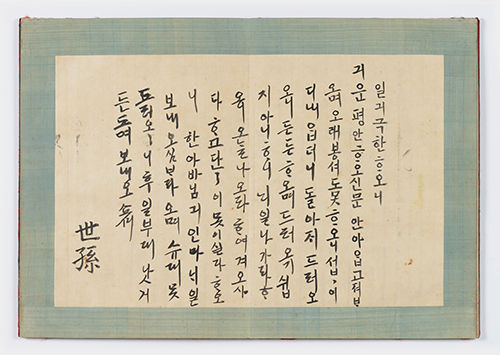 일긔극한ᄒᆞ오니
긔운평안ᄒᆞ오신문안아ᄋᆞᆸ고져ᄇᆞ
오며오래봉셔도못ᄒᆞ오니섭〻이
디내ᄋᆞᆸ더니돌아지드러오
오니든든ᄒᆞ오며드러오기쉽
지아니ᄒᆞ니ᄂᆡ일나가라ᄒᆞ
다ᄒᆞ고단단이못이실다ᄒᆞ오
니한아바님긔인마ᄂᆡ일
보내오심ᄇᆞ라오며슈대못
드러오니후일부ᄃᆡ낫거
든드려보내오쇼셔
世孫